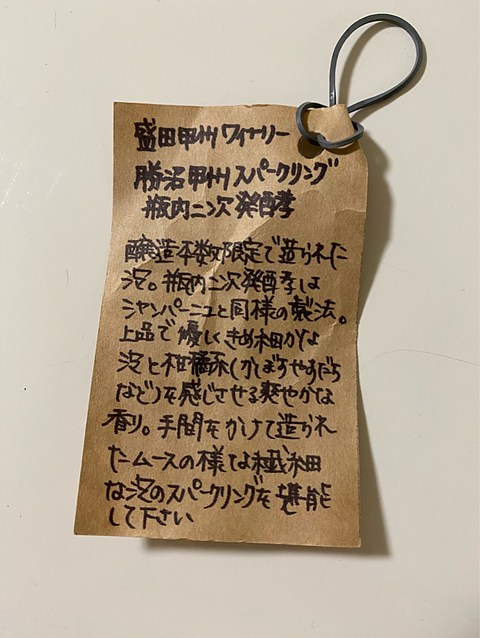 盛田甲州ワイナリー
勝沼甲州スパークリング
瓶内二次発酵
醸造本数限定で造られた
泡。瓶内二次発酵は
シャンパーニュと同様の製法。
上品で優しくきめ細かな
泡と柑橘系(かぼすやすだち
など)を感じさせる爽やかな
香り。手間をかけて造られ
たムースの様な繊細
な泡のスパークリングを堪能
して下さい